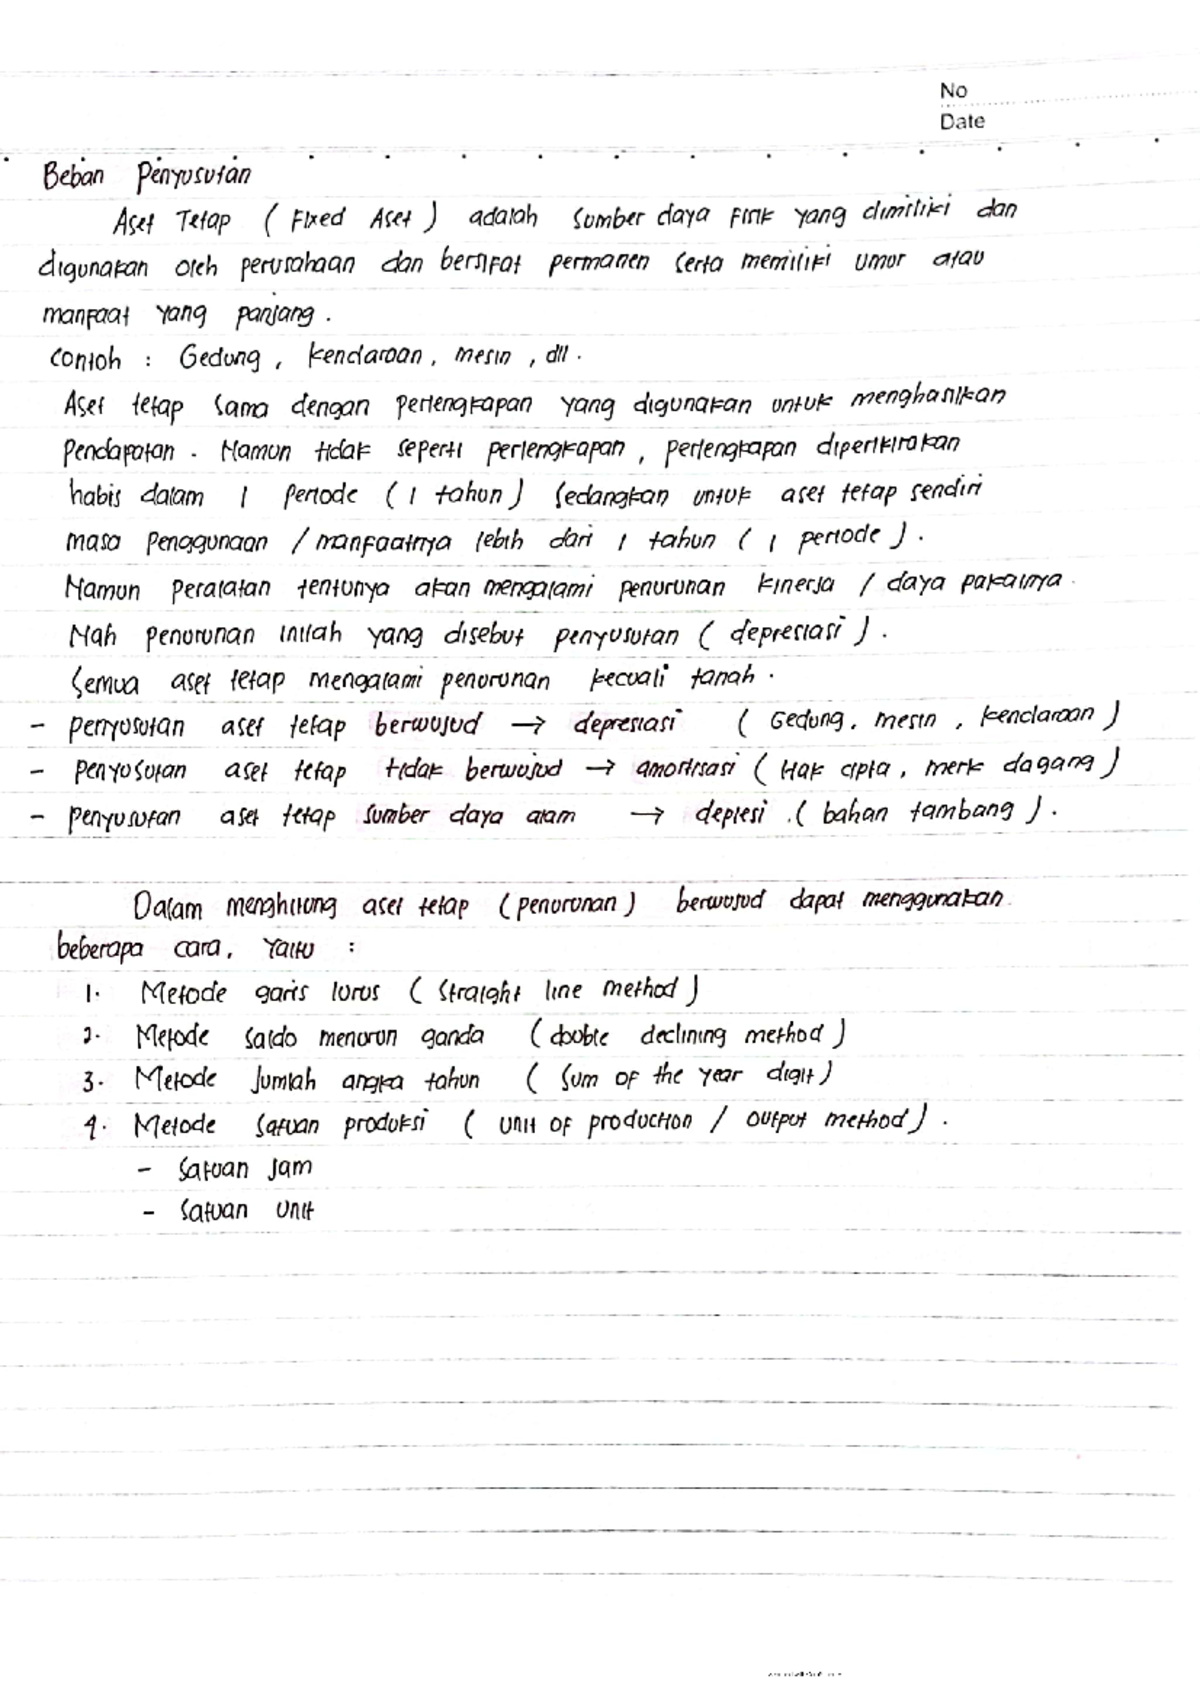 No
Date
Beban Penyusutan
Aset Tetap ( Fixed Aset ) adalah sumber daya Fisik yang dimiliki dan
digunakan oleh perusahaan dan bersifat permanen serta memiliki umur atau
manfaat yang panjang.
Contoh : Gedung, kendaraan, mesin, dll.
Aset tetap sama dengan perlengkapan yang digunakan untuk menghasilkan
Pendapatan. Namun tidak seperti perlengkapan, perlengkapan diperkirakan
habis dalam 1 periode ( 1 tahun ) sedangkan untuk aset tetap sendiri
masa penggunaan / manfaatnya lebih dari 1 tahun ( 1 periode ).
Namun peralatan tentunya akan mengalami penurunan kinerja / daya pakainya.
Nah penurunan inilah yang disebut penyusutan ( depresiasi ).
Semua aset tetap mengalami penurunan kecuali tanah.
- penyusutan aset tetap berwujud → depresiasi ( Gedung, mesin, kendaraan )
- penyusutan aset tetap tidak berwujud → amortisasi ( Hak cipta, merk dagang )
- penyusutan aset tetap sumber daya alam → deplesi. ( bahan tambang ).
Dalam menghitung aset tetap (penurunan) berwujud dapat menggunakan
beberapa cara, yaitu :
1. Metode garis lurus ( Straight line method )
2. Metode saldo menurun ganda ( double declining method )
3. Metode jumlah angka tahun ( Sum of the year digit )
4. Metode Satuan produksi ( unit of production / output method ).
- Satuan jam
- Satuan unit